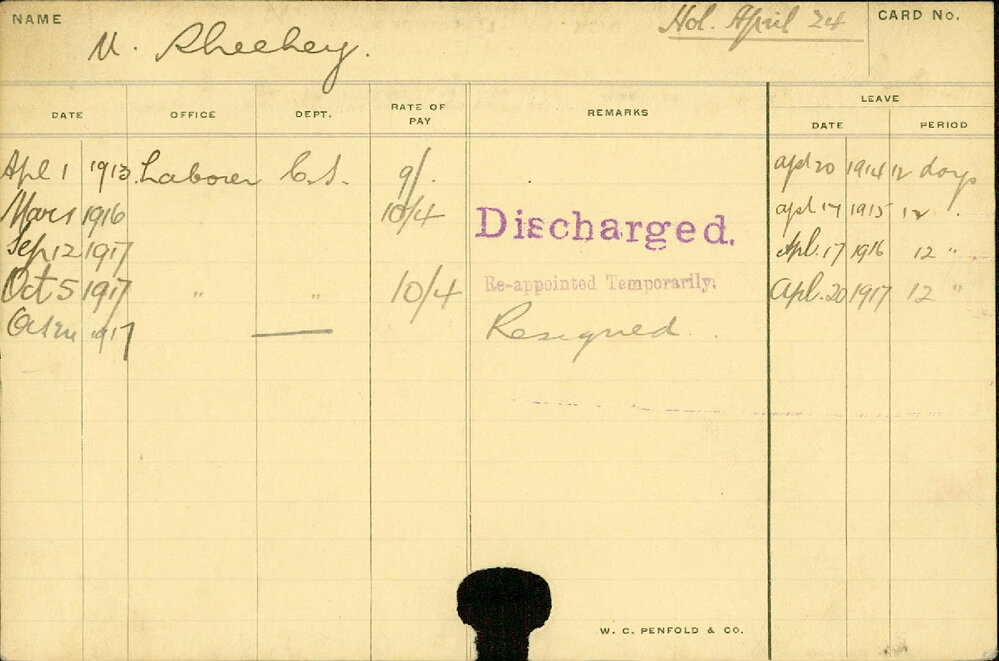 NAME
Hol. April 24
CARD No.
Sheehey.
DATE OFFICE DEPT. RATE OF PAY REMARKS LEAVE
DATE PERIOD
Apl 1 1913 Laborer C.S. 9/. apl 20 1914 12 days
1916 10/4 Discharged. apl 17 1915 12 .
Sep 12 1917 Apl. 17 1916 12 "
Oct 5 1917 " " 10/4 Re-appointed Temporarily. Apl. 20 1917 12 "
1917 — Resigned.
W. C. PENFOLD & CO.